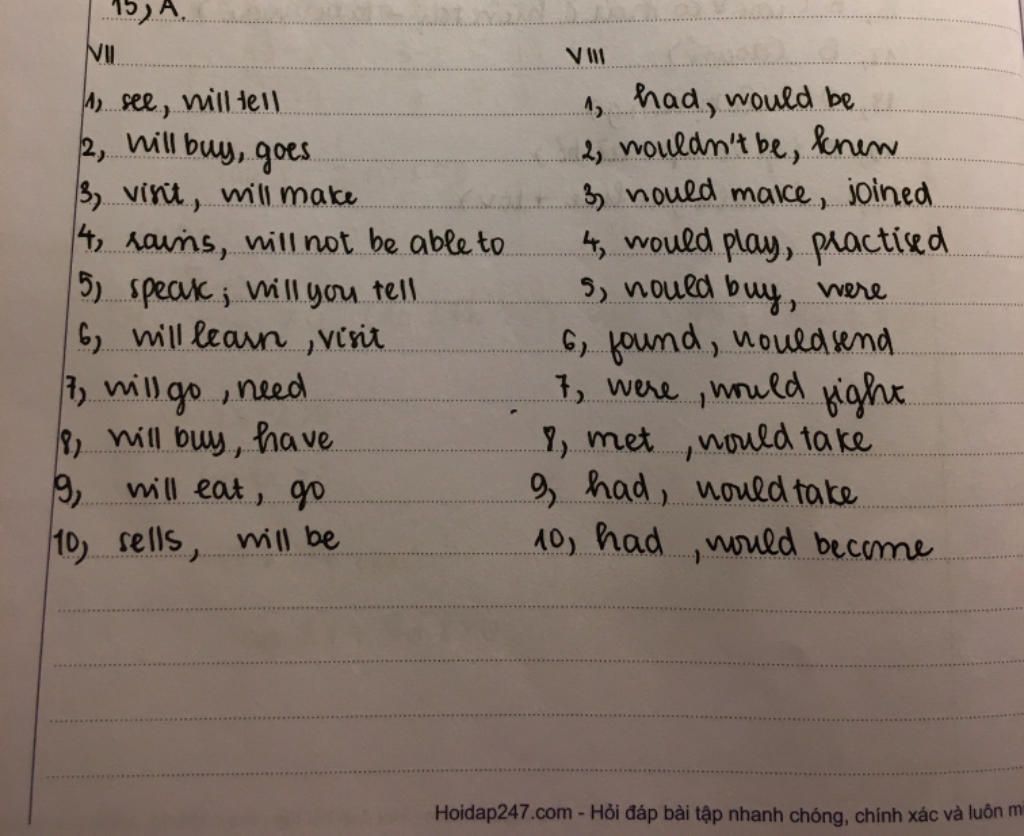 15, A.
VII
1, see, will tell
2, will buy, goes
3, visit, will make
4, rains, will not be able to
5) speak; will you tell
6, will learn, visit
7, will go, need
8, will buy, have
9, will eat, go
10, sells, will be
VIII
1, had, would be
2, wouldn't be, knew
3, would make, joined
4, would play, practised
5, would buy, were
6, found, would send
7, were, would fight
8, met, would take
9, had, would take
10, had, would become
Hoidap247.com - Hỏi đáp bài tập nhanh chóng, chính xác và luôn m